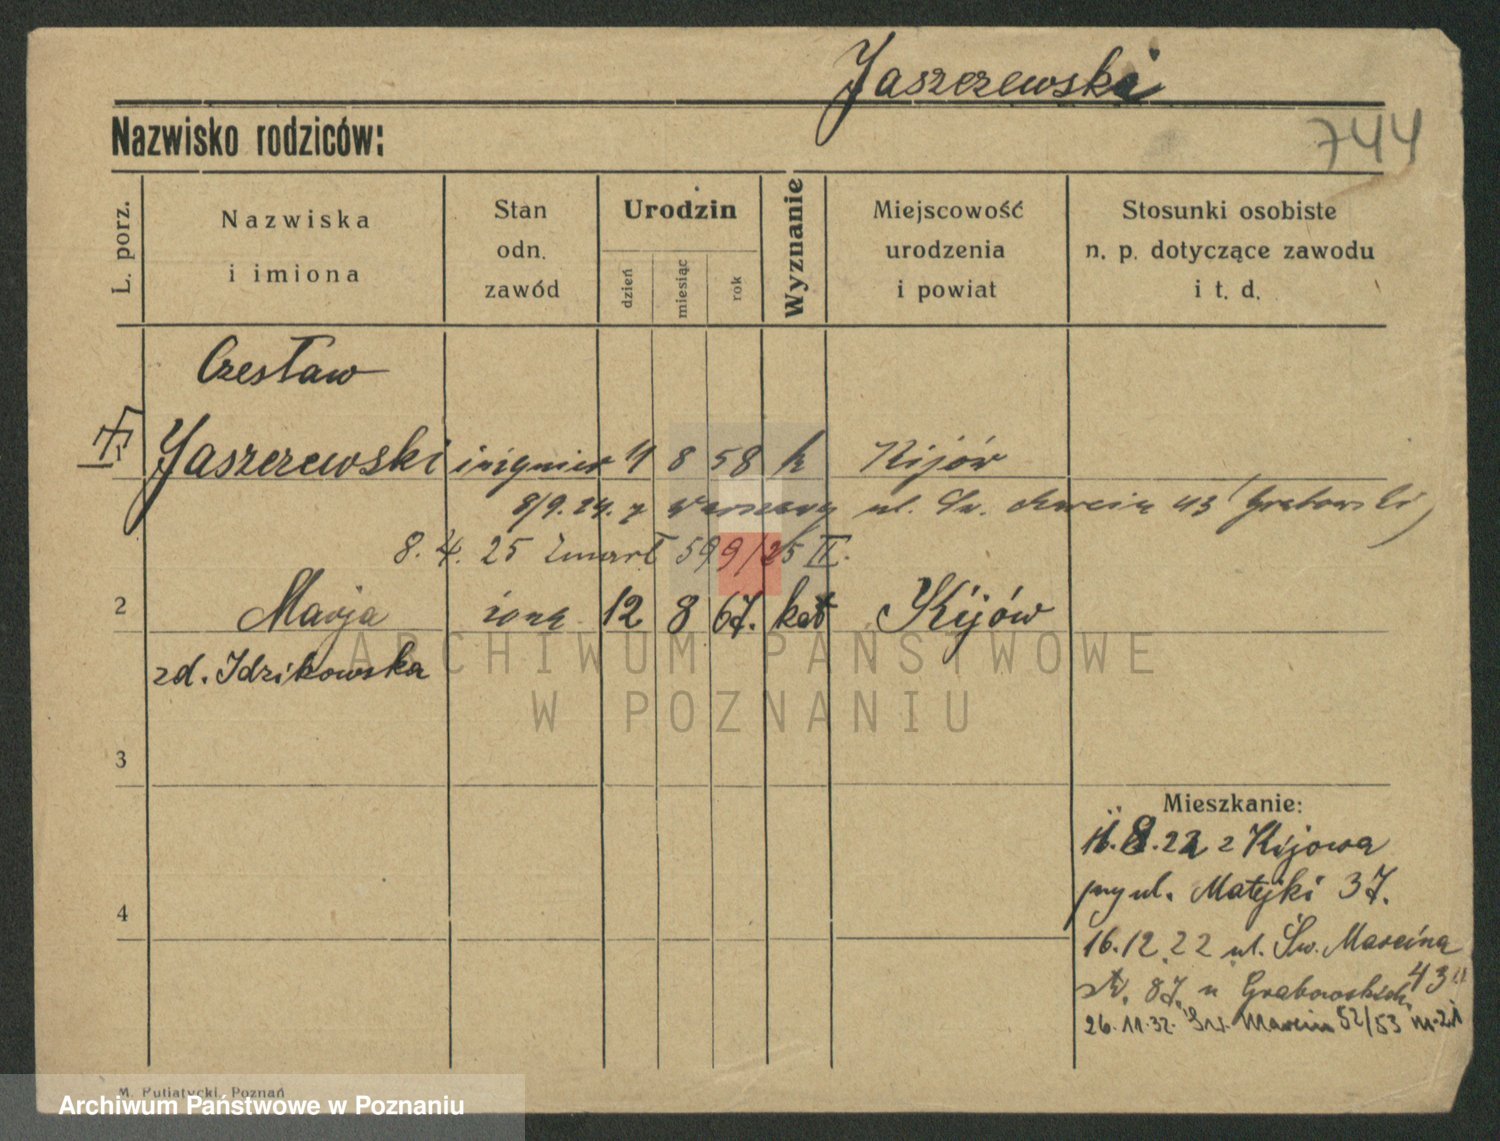 Jaszczewski
Nazwisko rodziców:
744
L. porz.
Nazwiska
i imiona
Stan
odn.
zawód
Urodzin
dzień
miesiąc
rok
Wyznanie
Miejscowość
urodzenia
i powiat
Stosunki osobiste
n. p. dotyczące zawodu
i t. d.
Czesław
Jaszczewski inżynier 4 8 58 k Kijów
8/9. 24. z Warszawy ul. Św. Marcin 43 (Grabowski)
8. 4. 25 zmarł 599/25 II.
2 Marja żona 12 8 67. kat Kijów
zd. Idzikowska
ARCHIWUM PAŃSTWOWE
W POZNANIU
3
Mieszkanie:
8.22 z Kijowa
przy ul. Matejki 37.
4
16.12.22 ul. Św. Marcina
43
87. u Grabowskich
26.11.32. Św. Marcin 52/53 m.21
M. Putiatycki, Poznań
Archiwum Państwowe w Poznaniu